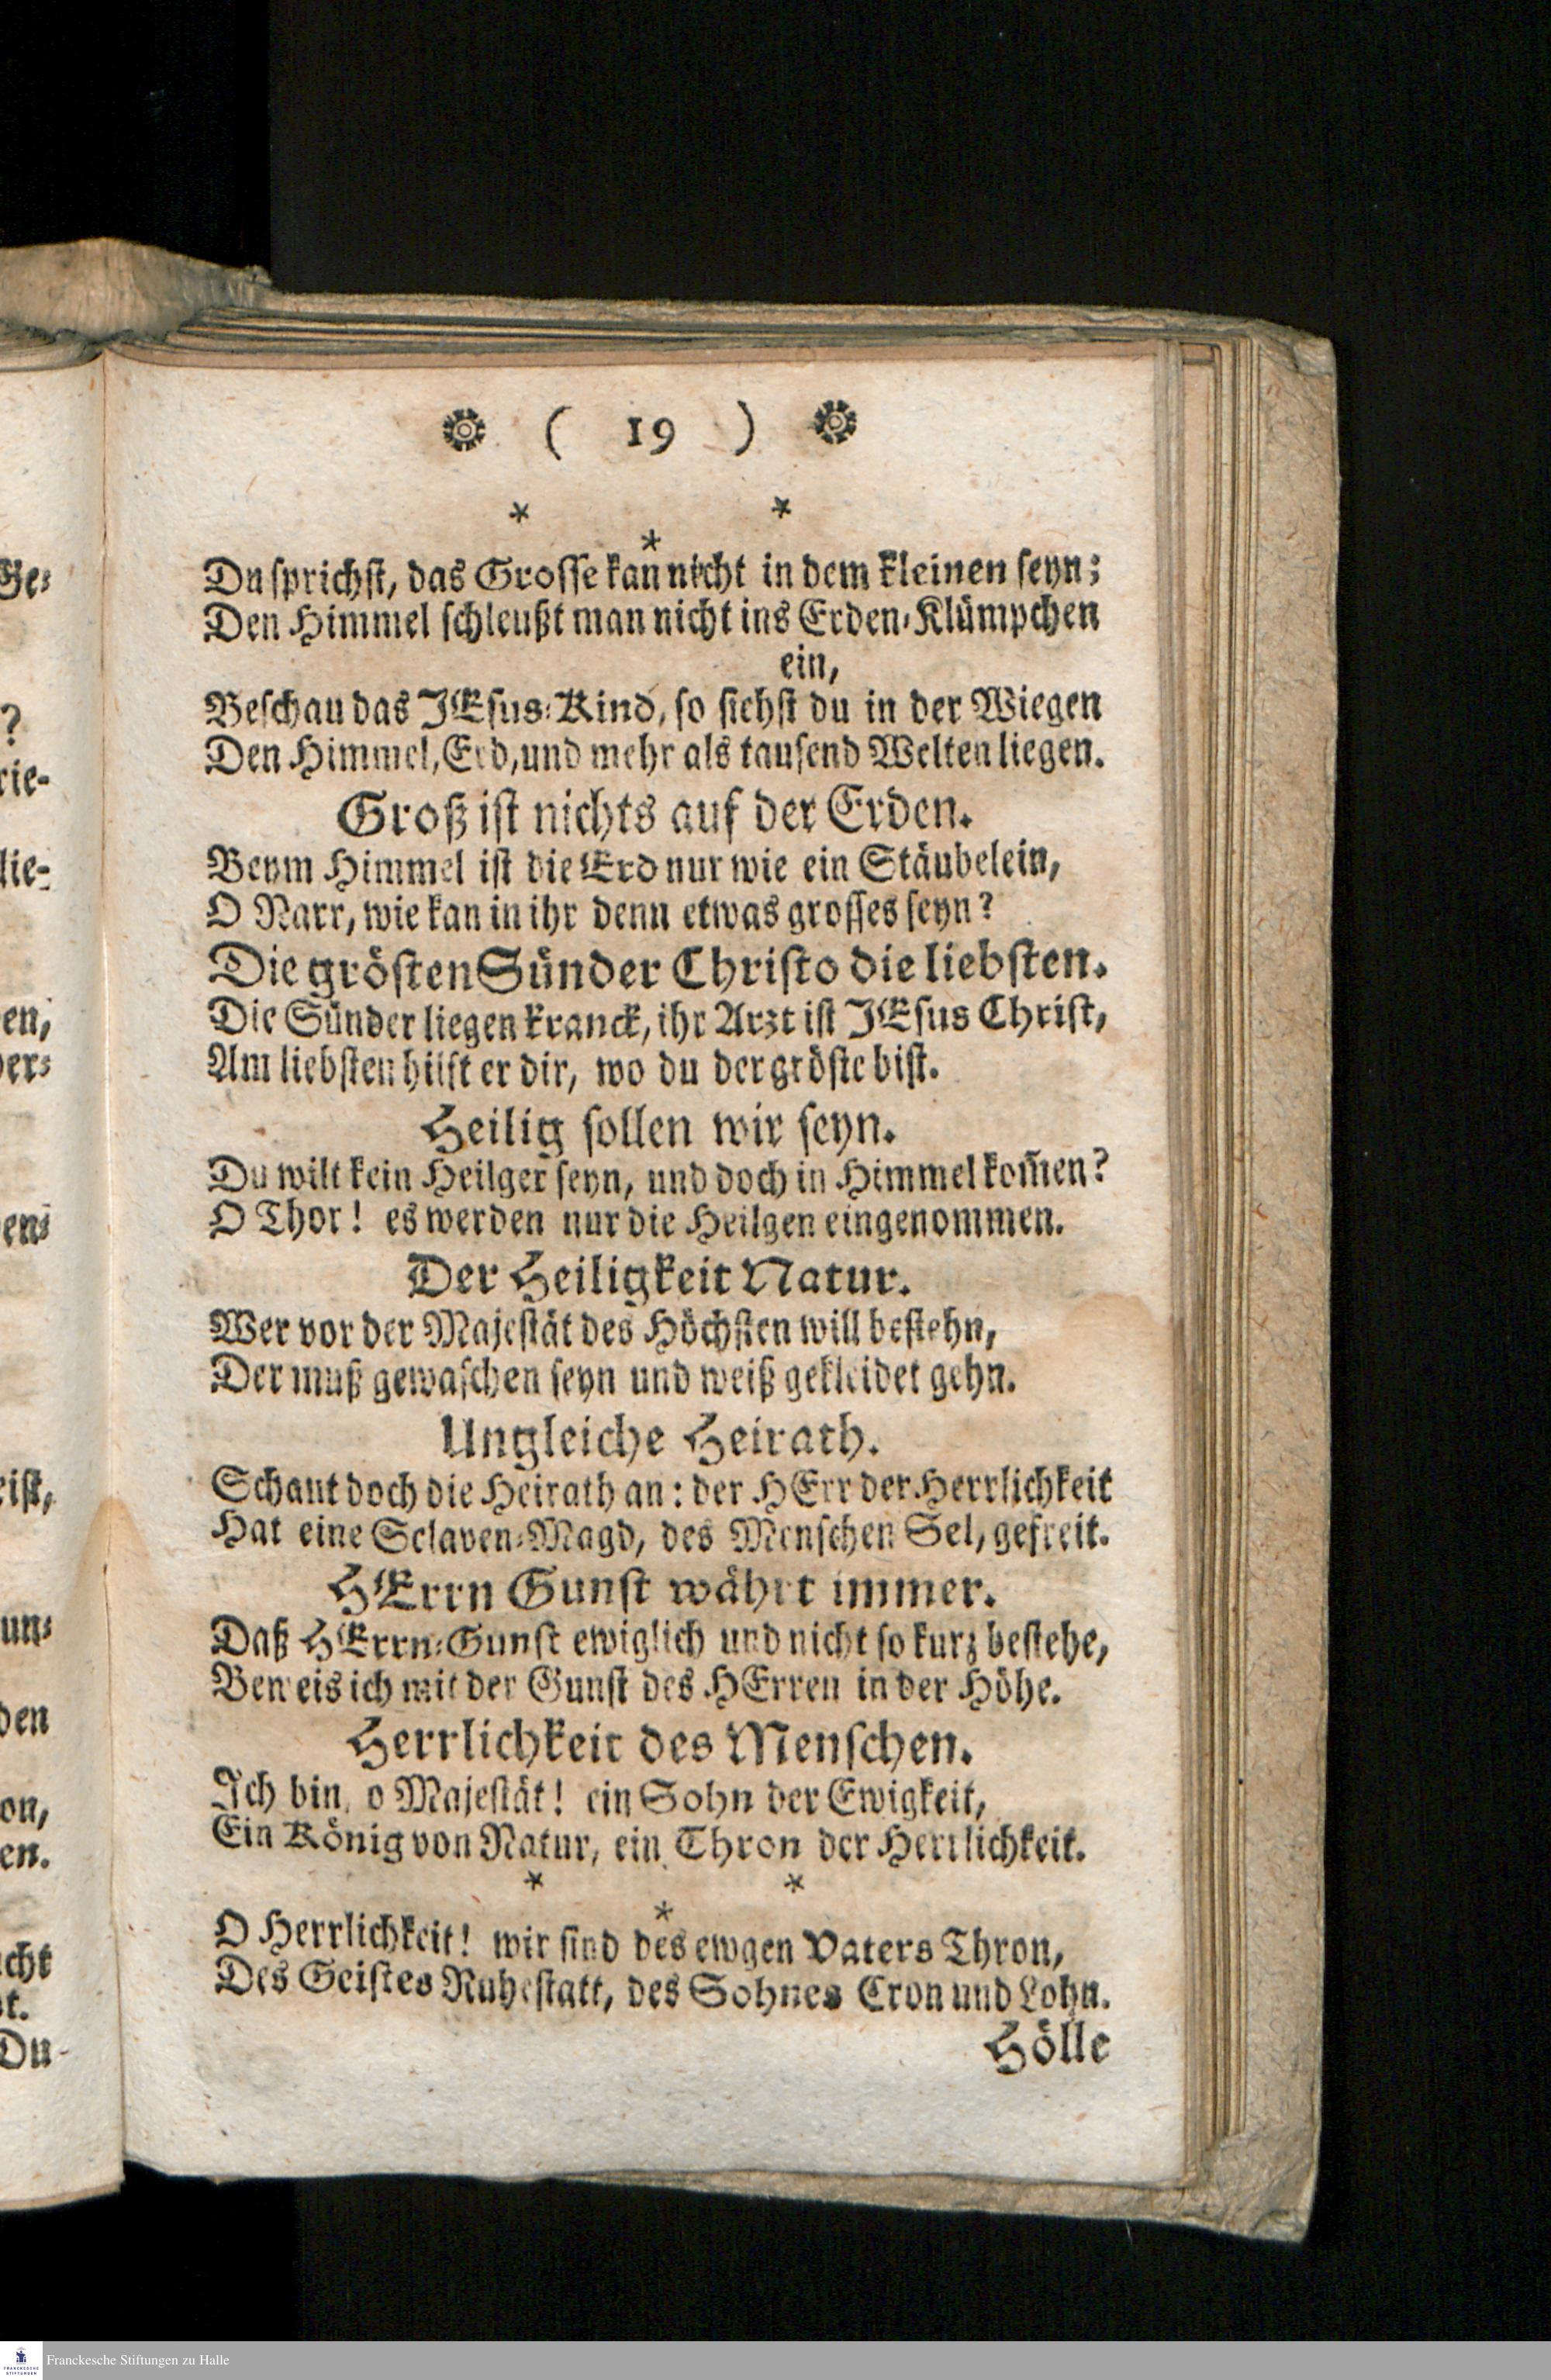 ( 19 )
* *
*
Du sprichst, das Grosse kan nicht in dem kleinen seyn;
Den Himmel schleußt man nicht ins Erden-Klümpchen
ein,
Beschau das JEsus-Kind, so siehst du in der Wiegen
Den Himmel, Erd, und mehr als tausend Welten liegen.
Groß ist nichts auf der Erden.
Beym Himmel ist die Erd nur wie ein Stäubelein,
O Narr, wie kan in ihr denn etwas grosses seyn?
Die grösten Sünder Christo die liebsten.
Die Sünder liegen kranck, ihr Arzt ist JEsus Christ,
Am liebsten hilft er dir, wo du der gröste bist.
Heilig sollen wir seyn.
Du wilt kein Heilger seyn, und doch in Himmel kom̅en?
O Thor! es werden nur die Heilgen eingenommen.
Der Heiligkeit Natur.
Wer vor der Majestät des Höchsten will bestehn,
Der muß gewaschen seyn und weiß gekleidet gehn.
Ungleiche Heirath.
Schaut doch die Heirath an: der HErr der Herrlichkeit
Hat eine Sclaven-Magd, des Menschen Sel, gefreit.
HErrn Gunst währt immer.
Daß HErrn-Gunst ewiglich und nicht so kurz bestehe,
Beweis ich mit der Gunst des HErren in der Höhe.
Herrlichkeit des Menschen.
Ich bin, o Majestät! ein Sohn der Ewigkeit,
Ein König von Natur, ein Thron der Herrlichkeit.
* *
*
O Herrlichkeit! wir sind des ewgen Vaters Thron,
Des Geistes Ruhestatt, des Sohnes Cron und Lohn.
Hölle
Ge-
?
rie-
lie-
en,
der-
en-
eist,
un-
den
on,
en.
icht
t.
Du-
Franckesche Stiftungen zu Halle
FRANCKESCHE
STIFTUNGEN